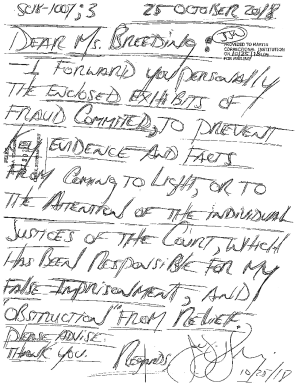 SC18-1007; 3 25 OCTOBER 2018
DEAR MS. BREEDING:
PROVIDED TO MARTIN
CORRECTIONAL INSTITUTION
ON 10/25/18
FOR MAILING
I FORWARD YOU PERSONALLY
THE ENCLOSED EXHIBITS OF
FRAUD COMMITTED, TO PREVENT
KEY EVIDENCE AND FACTS
FROM COMING TO LIGHT, OR TO
THE ATTENTION OF THE INDIVIDUAL
JUSTICES OF THE COURT, WHICH
HAS BEEN RESPONSIBLE FOR MY
FALSE IMPRISONMENT, AND
"OBSTRUCTION" FROM RELIEF.
PLEASE ADVISE.
THANK YOU. REGARDS,
10/25/18